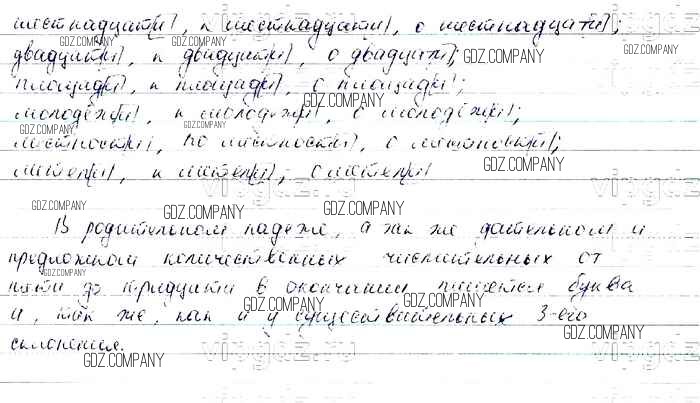 шестнадцати, к шестнадцати, о шестнадцати;
двадцати, к двадцати, о двадцати;
площади, к площади, о площади;
молодёжи, к молодёжи, о молодёжи;
местности, по местности, о местности;
метели, к метели, о метели
В родительном падеже, а так же дательном и
предложном количественных числительных от
пяти до тридцати в окончании пишется буква
и, так же, как и у существительных 3-его
склонения.
GDZ.COMPANY
vipgdz.ru